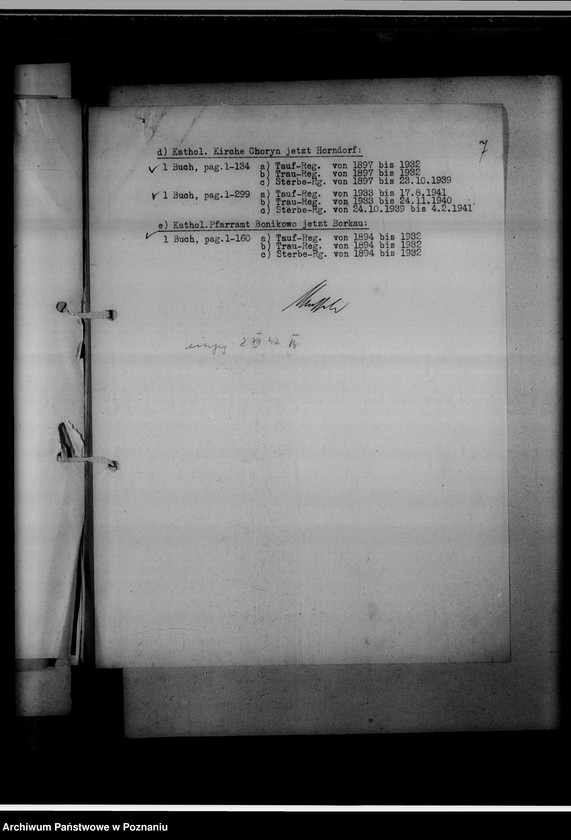 7
d) Kathol. Kirche Choryn jetzt Horndorf:
✓ 1 Buch, pag.1-134 a) Tauf-Reg. von 1897 bis 1932
b) Trau-Reg. von 1897 bis 1932
c) Sterbe-Rg. von 1897 bis 23.10.1939
✓ 1 Buch, pag.1-299 a) Tauf-Reg. von 1933 bis 17.8.1941
b) Trau-Reg. von 1933 bis 24.11.1940
c) Sterbe-Rg. von 24.10.1939 bis 4.2.1941
e) Kathol.Pfarramt Bonikowo jetzt Borkau:
✓ 1 Buch, pag.1-160 a) Tauf-Reg. von 1894 bis 1932
b) Trau-Reg. von 1894 bis 1932
c) Sterbe-Rg. von 1894 bis 1932
Archiwum Państwowe w Poznaniu